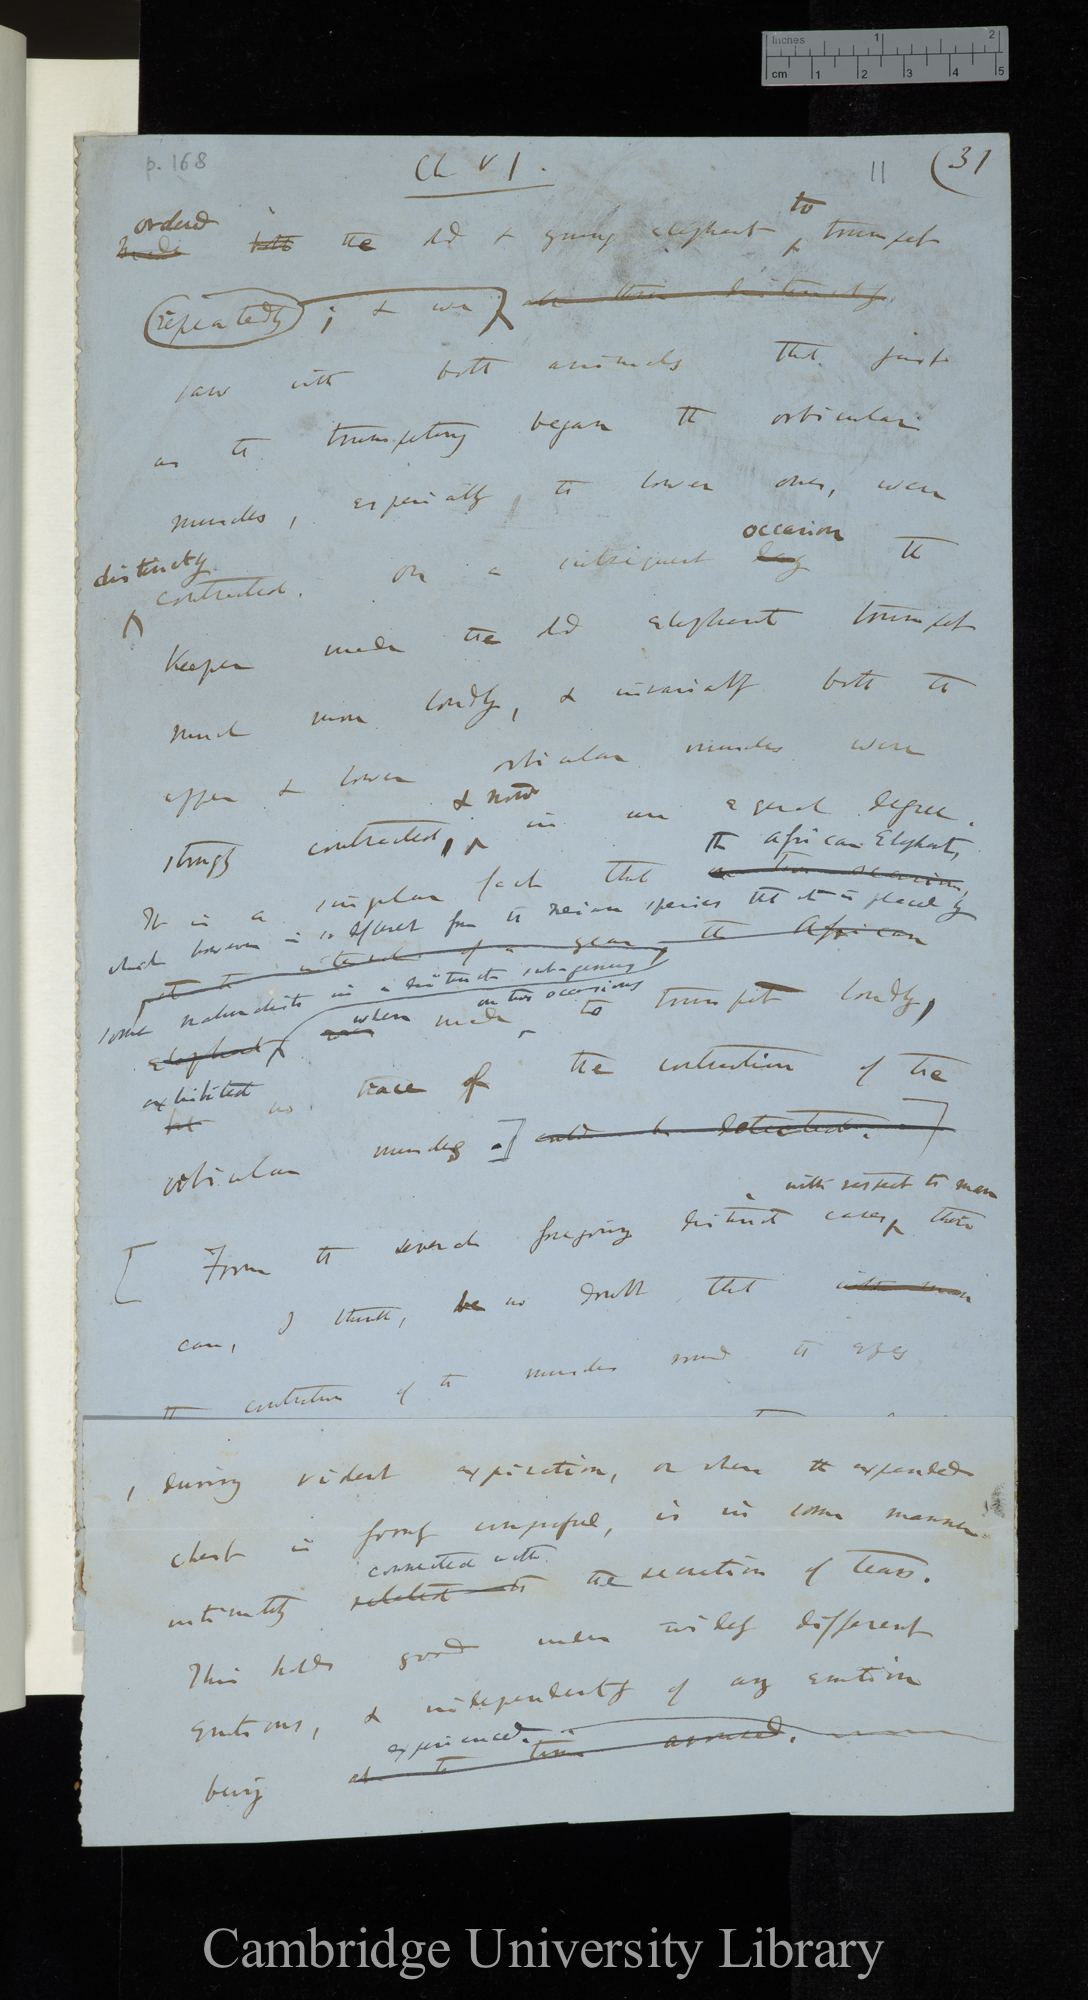 Inches 1 2
cm 1 2 3 4 5
p. 168
Ch VI.
11
(31
ordered to
made both the old & young elephant trumpet
repeatedly; & we
saw with both animals that just
as the trumpeting began the orbicular
muscles, especially the lower ones, were
distinctly occasion
contracted. On a subsequent day the
Keeper made the old elephant trumpet
much more loudly, & invariably both the
upper & lower orbicular muscles were
& now
strongly contracted, in an equal degree.
the African Elephant,
It is a singular fact that on two occasions,
which however is so different from the Indian species that it is placed by
at the interval of a year the African
some naturalists in a distinct sub-genus,
when on two occasions
elephant made to trumpet loudly,
exhibited
but no trace of the contraction of the
orbicular muscles. could be detected.
with respect to man
From the several foregoing distinct cases, there
can, I think, be no doubt that with man
the contraction of the muscles round the eyes
, during violent expiration, or when the expanded
chest is forcibly compressed, is in some manner
connected with
intimately related to the secretion of tears.
This holds good under widely different
emotions, & independently of any emotion
experienced.
being at the time aroused.
Cambridge University Library